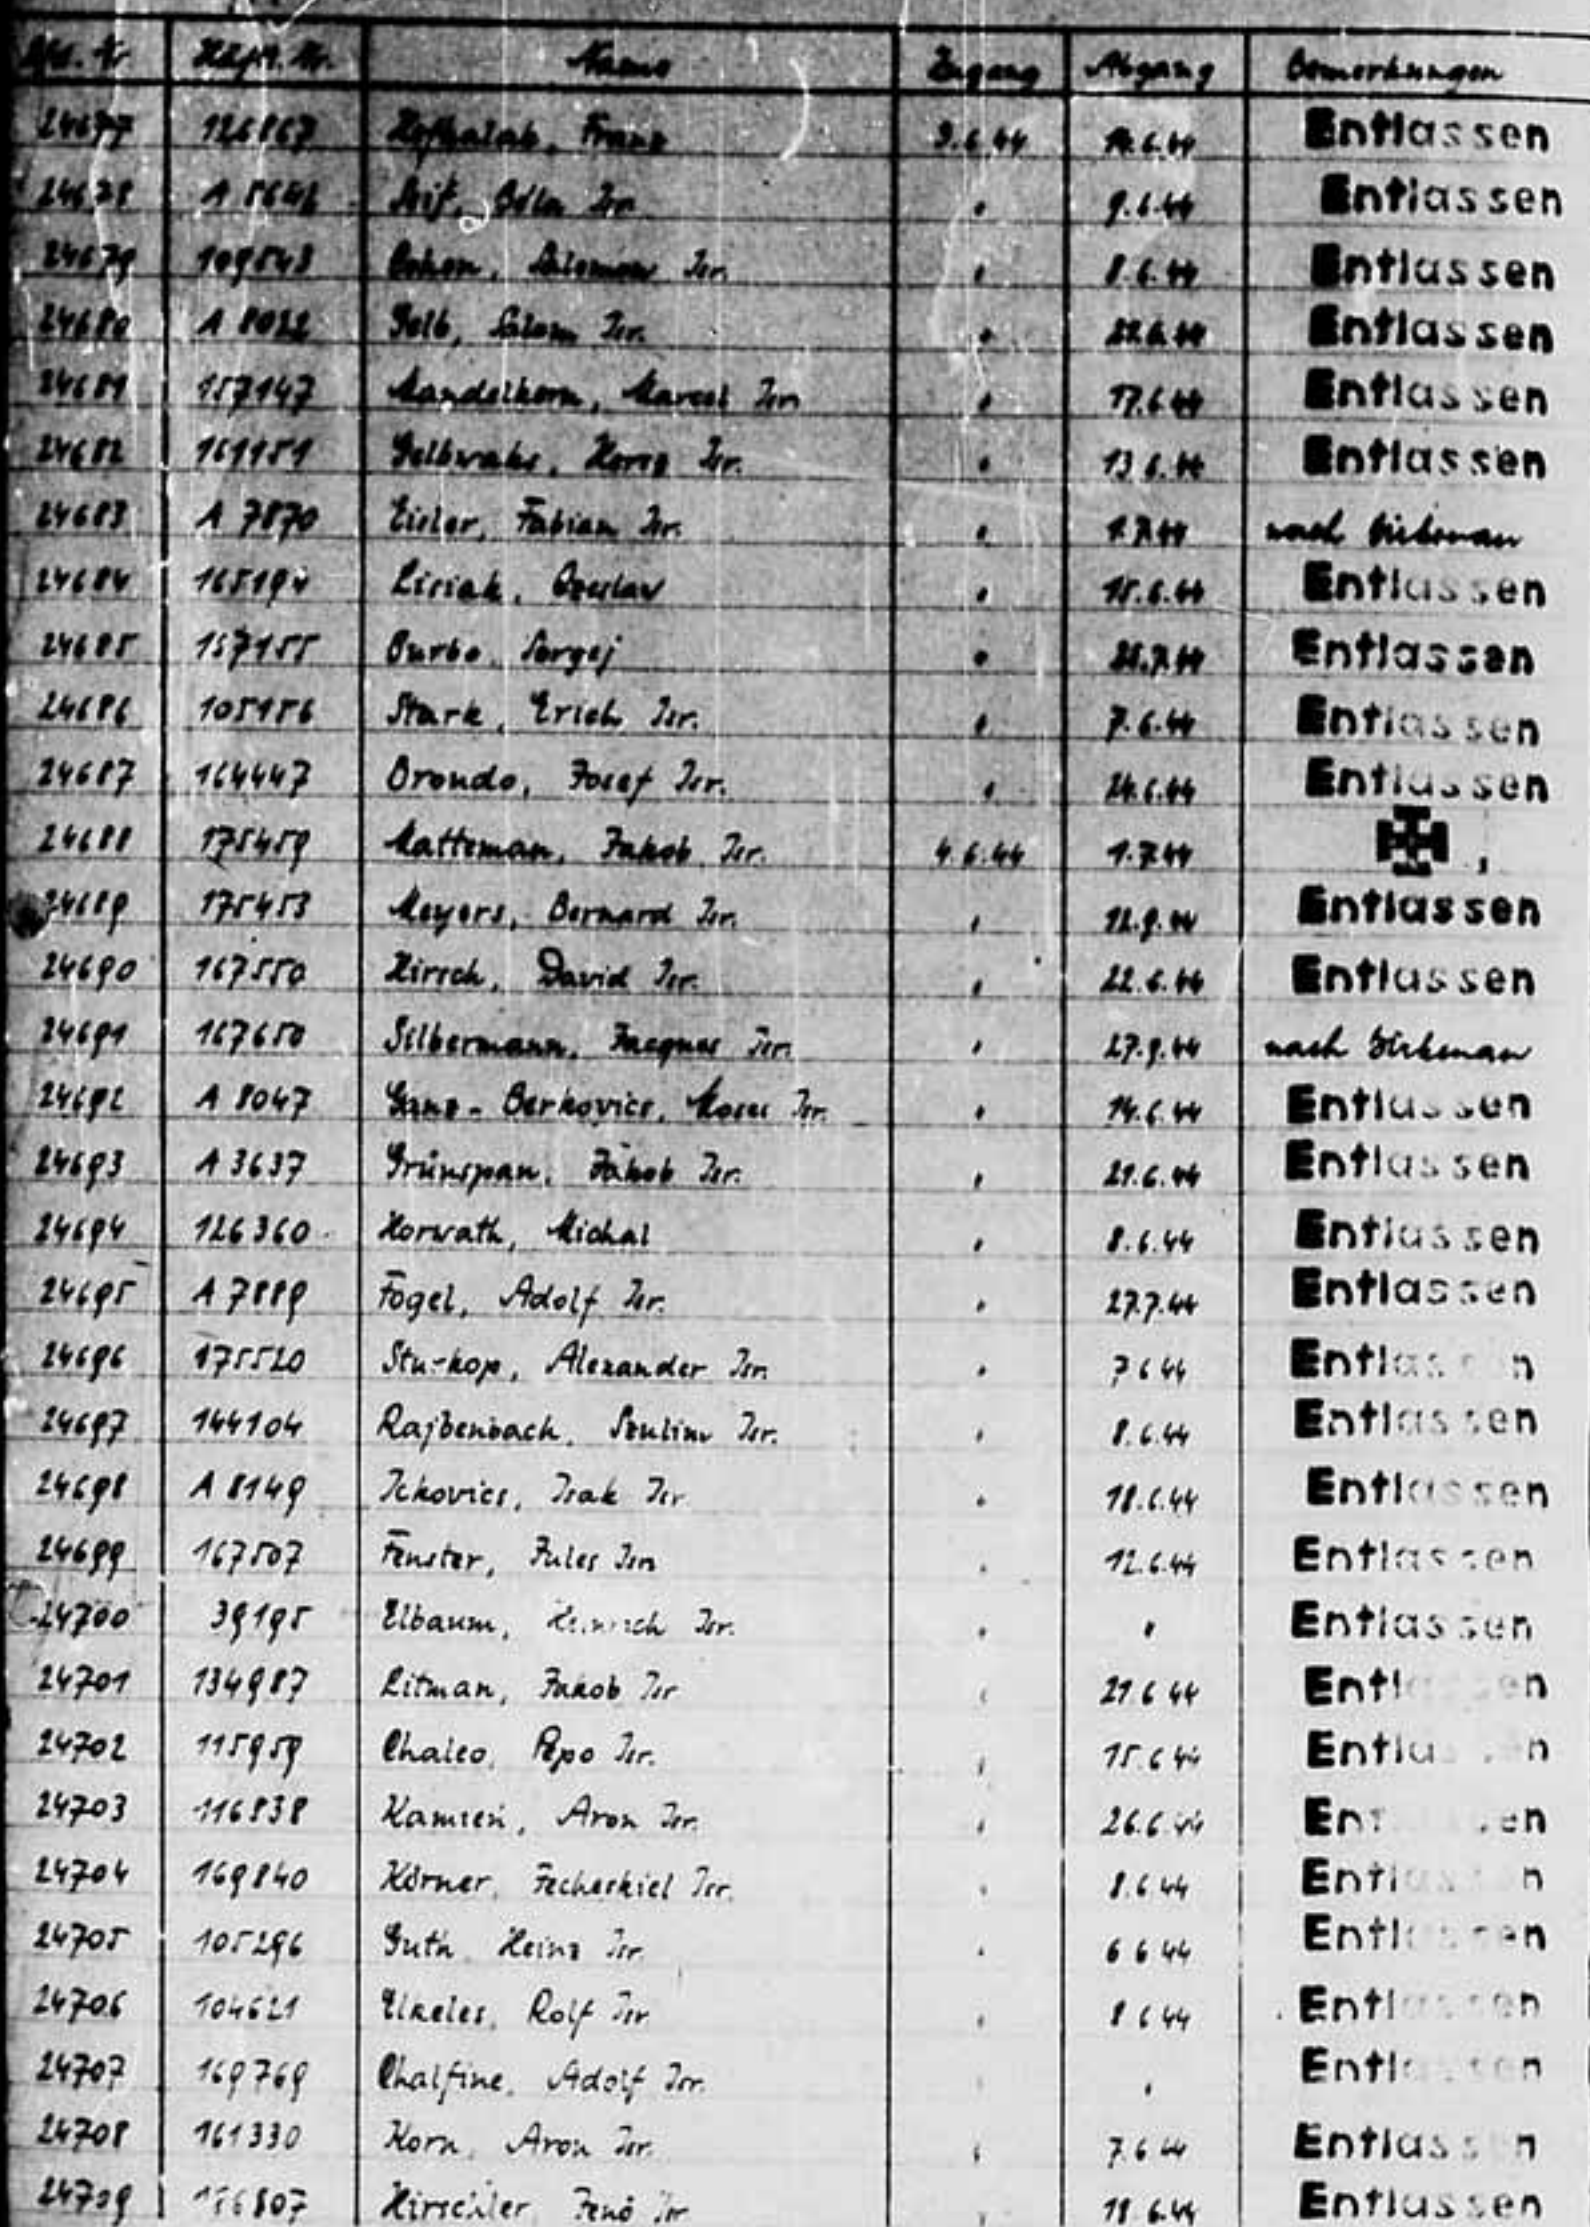 Lfd. Nr. Häft. Nr. Name Zugang Abgang Bemerkungen
24677 126867 Franz 9.6.44 14.6.44 Entlassen
24678 A Isr. " 9.6.44 Entlassen
24679 109543 Salomon Isr. " 8.6.44 Entlassen
24680 A 8022 Gelb, Isr. " 22.6.44 Entlassen
24681 157147 Mandelkorn, Marcel Isr. " 17.6.44 Entlassen
24682 161151 Gelbwaks, Hersz Isr. " 13.6.44 Entlassen
24683 A 7870 Eisler, Fabian Isr. " 1.7.44 nach Birkenau
24684 165194 Lisiak, Czeslaw " 15.6.44 Entlassen
24685 157155 Burbo, Sergej " Entlassen
24686 105156 Stark, Erich Isr. " 7.6.44 Entlassen
24687 164447 Brondo, Josef Isr. " 24.6.44 Entlassen
24688 175459 Matteman, Jakob Isr. 4.6.44 1.7.44
24689 175453 Meyers, Bernard Isr. " 12.9.44 Entlassen
24690 167550 Hirsch, David Isr. " 22.6.44 Entlassen
24691 167650 Silbermann, Jacques Isr. " 27.9.44 nach Birkenau
24692 A 8047 Ganz - Berkovics, Moses Isr. " 14.6.44 Entlassen
24693 A 3637 Grünspan, Jakob Isr. " 21.6.44 Entlassen
24694 126360 Horwath, Michal " 8.6.44 Entlassen
24695 A 7889 Fogel, Adolf Isr. " 27.7.44 Entlassen
24696 175520 Stu-kop, Alexander Isr. " 7.6.44 Entlassen
24697 144104 Rajbenbach, Szulim Isr. " 8.6.44 Entlassen
24698 A 8149 Ickovics, Isak Isr. " 18.6.44 Entlassen
24699 167507 Fenster, Jules Isr. " 12.6.44 Entlassen
24700 39195 Elbaum, Heinrich Isr. " " Entlassen
24701 134987 Litman, Jakob Isr. " 21.6.44 Entlassen
24702 115959 Chaleo, Pepo Isr. " 15.6.44 Entlassen
24703 116838 Kamień, Aron Isr. " 26.6.44 Entlassen
24704 169840 Körner, Jecheskiel Isr. " 8.6.44 Entlassen
24705 105296 Guth Heinz Isr. " 6.6.44 Entlassen
24706 104621 Elkeles, Rolf Isr. " 8.6.44 Entlassen
24707 169769 Chalfine, Adolf Isr. " " Entlassen
24708 161330 Korn, Aron Isr. " 7.6.44 Entlassen
24709 Hirschler Jenö Isr. " 18.6.44 Entlassen